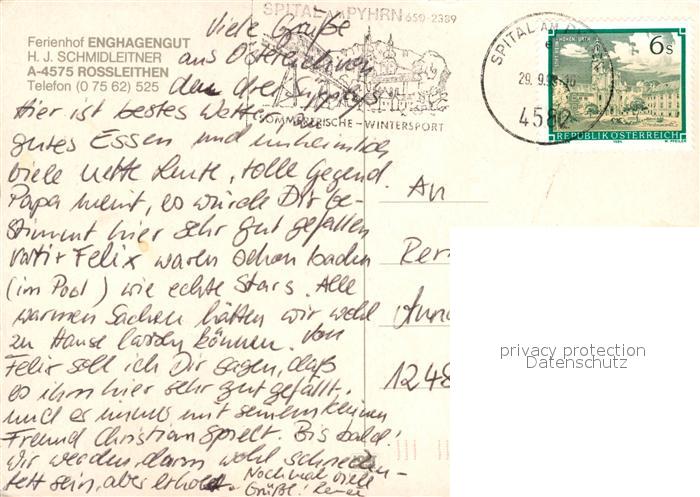 SPITAL AM PYHRN 650-2389
Viele Grüße
Ferienhof ENGHAGENGUT
H. J. SCHMIDLEITNER
A-4575 ROSSLEITHEN
Telefon (0 75 62) 525
aus Österreich von
den drei
Hier ist bestes Wetter,
SOMMERFRISCHE - WINTERSPORT
gutes Essen und unheimlich
viele nette Leute, tolle Gegend.
Papa meint, es würde Dir be-
stimmt hier sehr gut gefallen
Felix waren schon baden
(im Pool) wie echte Stars. Alle
warmen Sachen hätten wir wohl
zu Hause lassen können. Von
Felix soll ich Dir sagen, daß
es ihm hier sehr gut gefällt,
und er immer mit seinem kleinen
Freund Christian spielt. Bis bald!
Wir werden dann wohl
sein, aber erholt.
Nochmal viele
Grüße!
SPITAL AM
29. 9.
4582
STIFT REIN-HOHENFURTH
6 S
REPUBLIK ÖSTERREICH
An
1248
privacy protection
Datenschutz